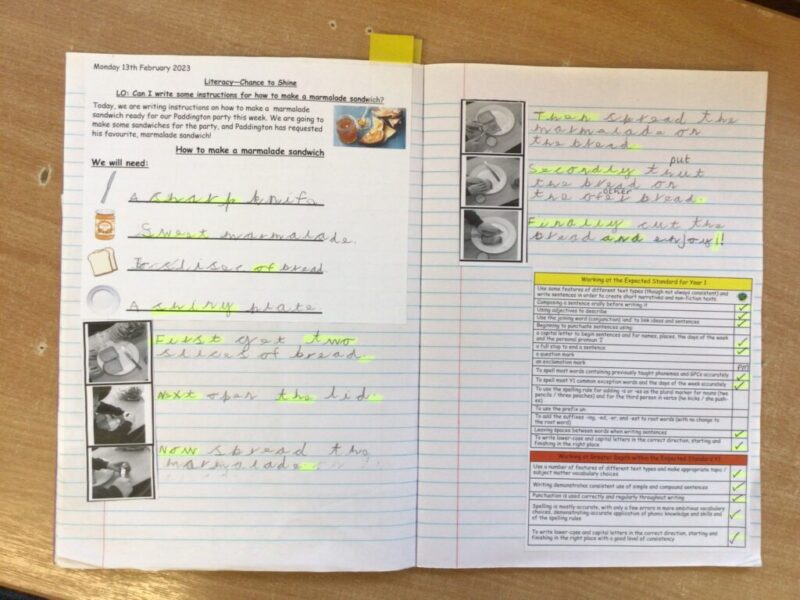 Monday 13th February 2023
Literacy—Chance to Shine
LO: Can I write some instructions for how to make a marmalade sandwich?
Today, we are writing instructions on how to make a marmalade
sandwich ready for our Paddington party this week. We are going to
make some sandwiches for the party, and Paddington has requested
his favourite, marmalade sandwich!
How to make a marmalade sandwich
We will need:
A sharp knife
Sweet marmalade.
To slises of bread
A shiny plate
First get two
slices of bread.
Next open the lid.
Now spread the
marmalade.
Then spread the
marmalade on
the bread.
put
Secondly thut
the bread on
other
the over bread.
Finally cut the
bread and enjoy!
Working at the Expected Standard for Year 1
Use some features of different text types (though not always consistent) and
write sentences in order to create short narratives and non-fiction texts
Composing a sentence orally before writing it
Using adjectives to describe
Use the joining word (conjunction) 'and' to link ideas and sentences
Beginning to punctuate sentences using:
a capital letter to begin sentences and for names, places, the days of the week
and the personal pronoun 'I'
a full stop to end a sentence
a question mark
an exclamation mark
To spell most words containing previously taught phonemes and GPCs accurately
To spell most Y1 common exception words and the days of the week accurately
To use the spelling rule for adding -s or -es as the plural marker for nouns (two
pencils / three peaches) and for the third person in verbs (he kicks / she push-
es)
To use the prefix un
To add the suffixes -ing, -ed, -er, and -est to root words (with no change to
the root word)
Leaving spaces between words when writing sentences
To write lower-case and capital letters in the correct direction, starting and
finishing in the right place
Working at Greater Depth within the Expected Standard Y1
Use a number of features of different text types and make appropriate topic /
subject matter vocabulary choices
Writing demonstrates consistent use of simple and compound sentences
Punctuation is used correctly and regularly throughout writing
Spelling is mostly accurate, with only a few errors in more ambitious vocabulary
choices, demonstrating accurate application of phonic knowledge and skills and
of the spelling rules
To write lower-case and capital letters in the correct direction, starting and
finishing in the right place with a good level of consistency